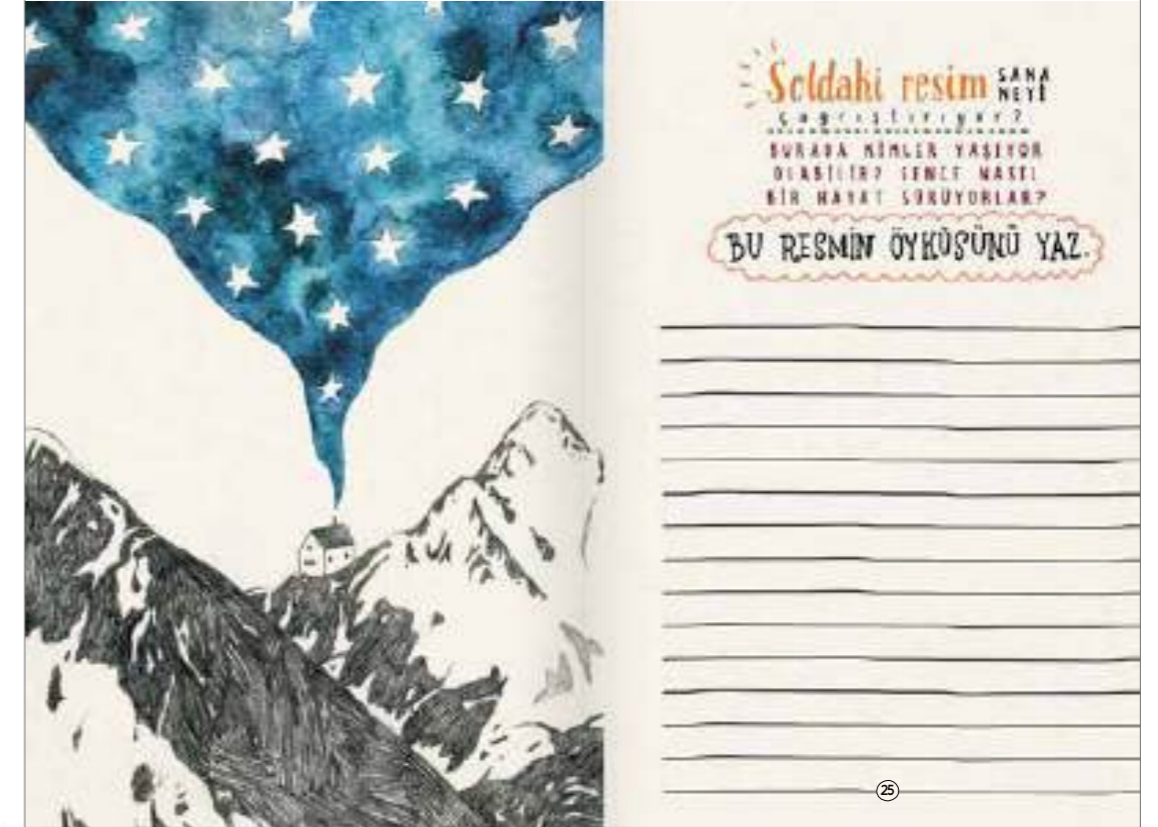 Soldaki resim SANA
NEYİ
çağrıştırıyor?
BURADA KİMLER YAŞIYOR
OLABİLİR? SENCE NASIL
BİR HAYAT SÜRÜYORLAR?
BU RESMİN ÖYKÜSÜNÜ YAZ.
25